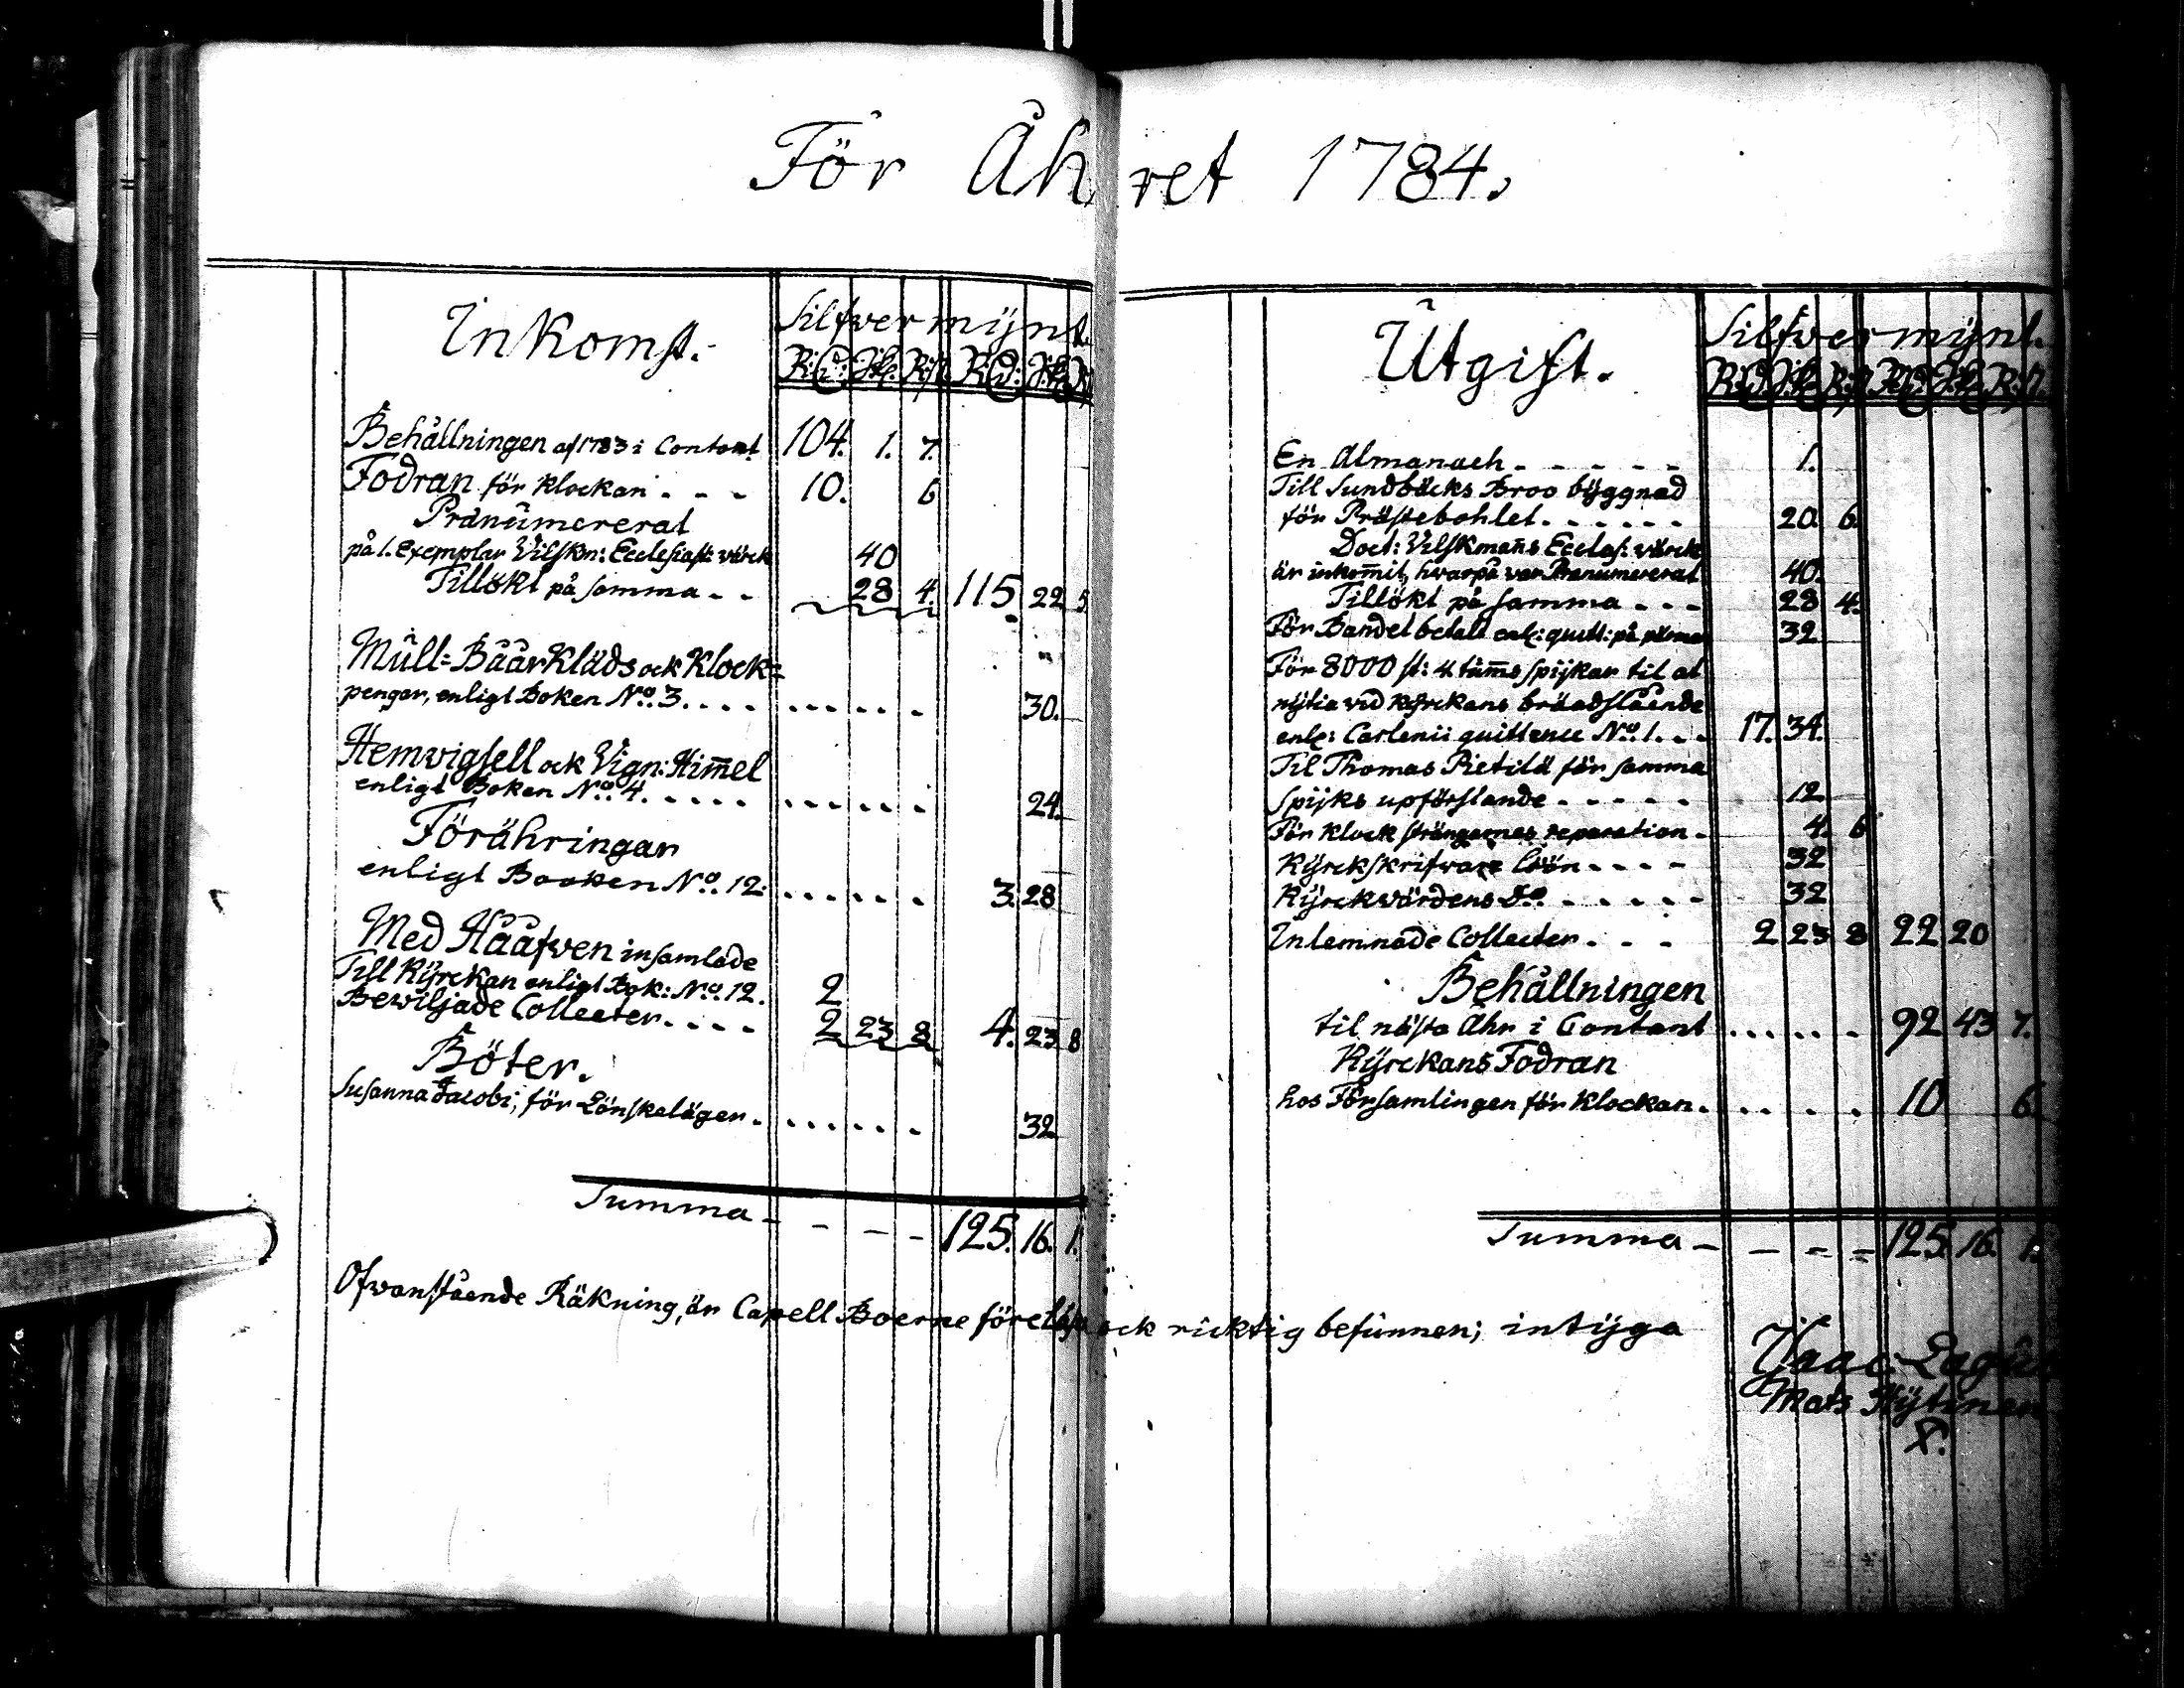 För Åhret 1784.
Inkomst.
Silfvermÿnt.
R:D: Sk: R:st.
Behållningen af 1783 i Contant 104. 1. 7.
Fodran för klockan - - - 10. 6
Pränumererat
på 1. Exemplar Vilskm: Ecclesiast: värck 40
Tillökt på samma - - 28 4. 115 22 5
Mull= Båårkläds ock Klock=
pengar, enligt Boken No. 3. . . . 30.
Hemvigsell ock Vign: Himmel
enligt Boken No. 4. . . . . 24.
Förähringar
enligt Booken No. 12. 3. 28
Med Hååfven insamlade
Till Kÿrckan enligt Bok: No. 12. 2
Bewiljade Collecter. . . . 2 23 8 4. 23 8
Böter.
Susanna Jacobs; för Lönskeläger. 32
Summa - - - - 125. 16. 1.
Utgift.
Silfvermÿnt.
R:D: Sk: R:st. R:D: Sk: R:st.
En Almanach - - - - - 1.
Till Sundbäcks Broo bÿggnad
för Prästebohlet. . . . . . 20. 6.
Doct: Vilskmans Ecclas: värck
är inkommit, hwarpå var Pränumererat 40.
Tillökt på samma - - - 28 4.
För Bandet betalt enl: quitt: på 32
För 8000 st: 4 tums spijkar til at
nÿtia vid Kÿrckans brädslående
enl: Carlenii quittence No. 1. - - 17. 34.
Til Thomas Pietilä för samma
spijks upförslande - - - - - 12
För Klock strängarnas reparation - 4. 6
Kÿrckskrifvare löön - - - - 32
Kÿrckvärdens Do. - - - - - 32
Inlemnade Collecter. - - - 2 23 8 22 20
Behållningen
til nästa Åhr i Contant . . . . . 92 43 7.
Kÿrckans Fodran
hos Församlingen för klockan. . . . . 10 6.
Summa - - - - 125. 16. 1.
Ofvanstående Räkning, är Capell Boerne föreläst ock ricktig befunnen; intÿga
Isaac
Mats Hÿtinen
X.